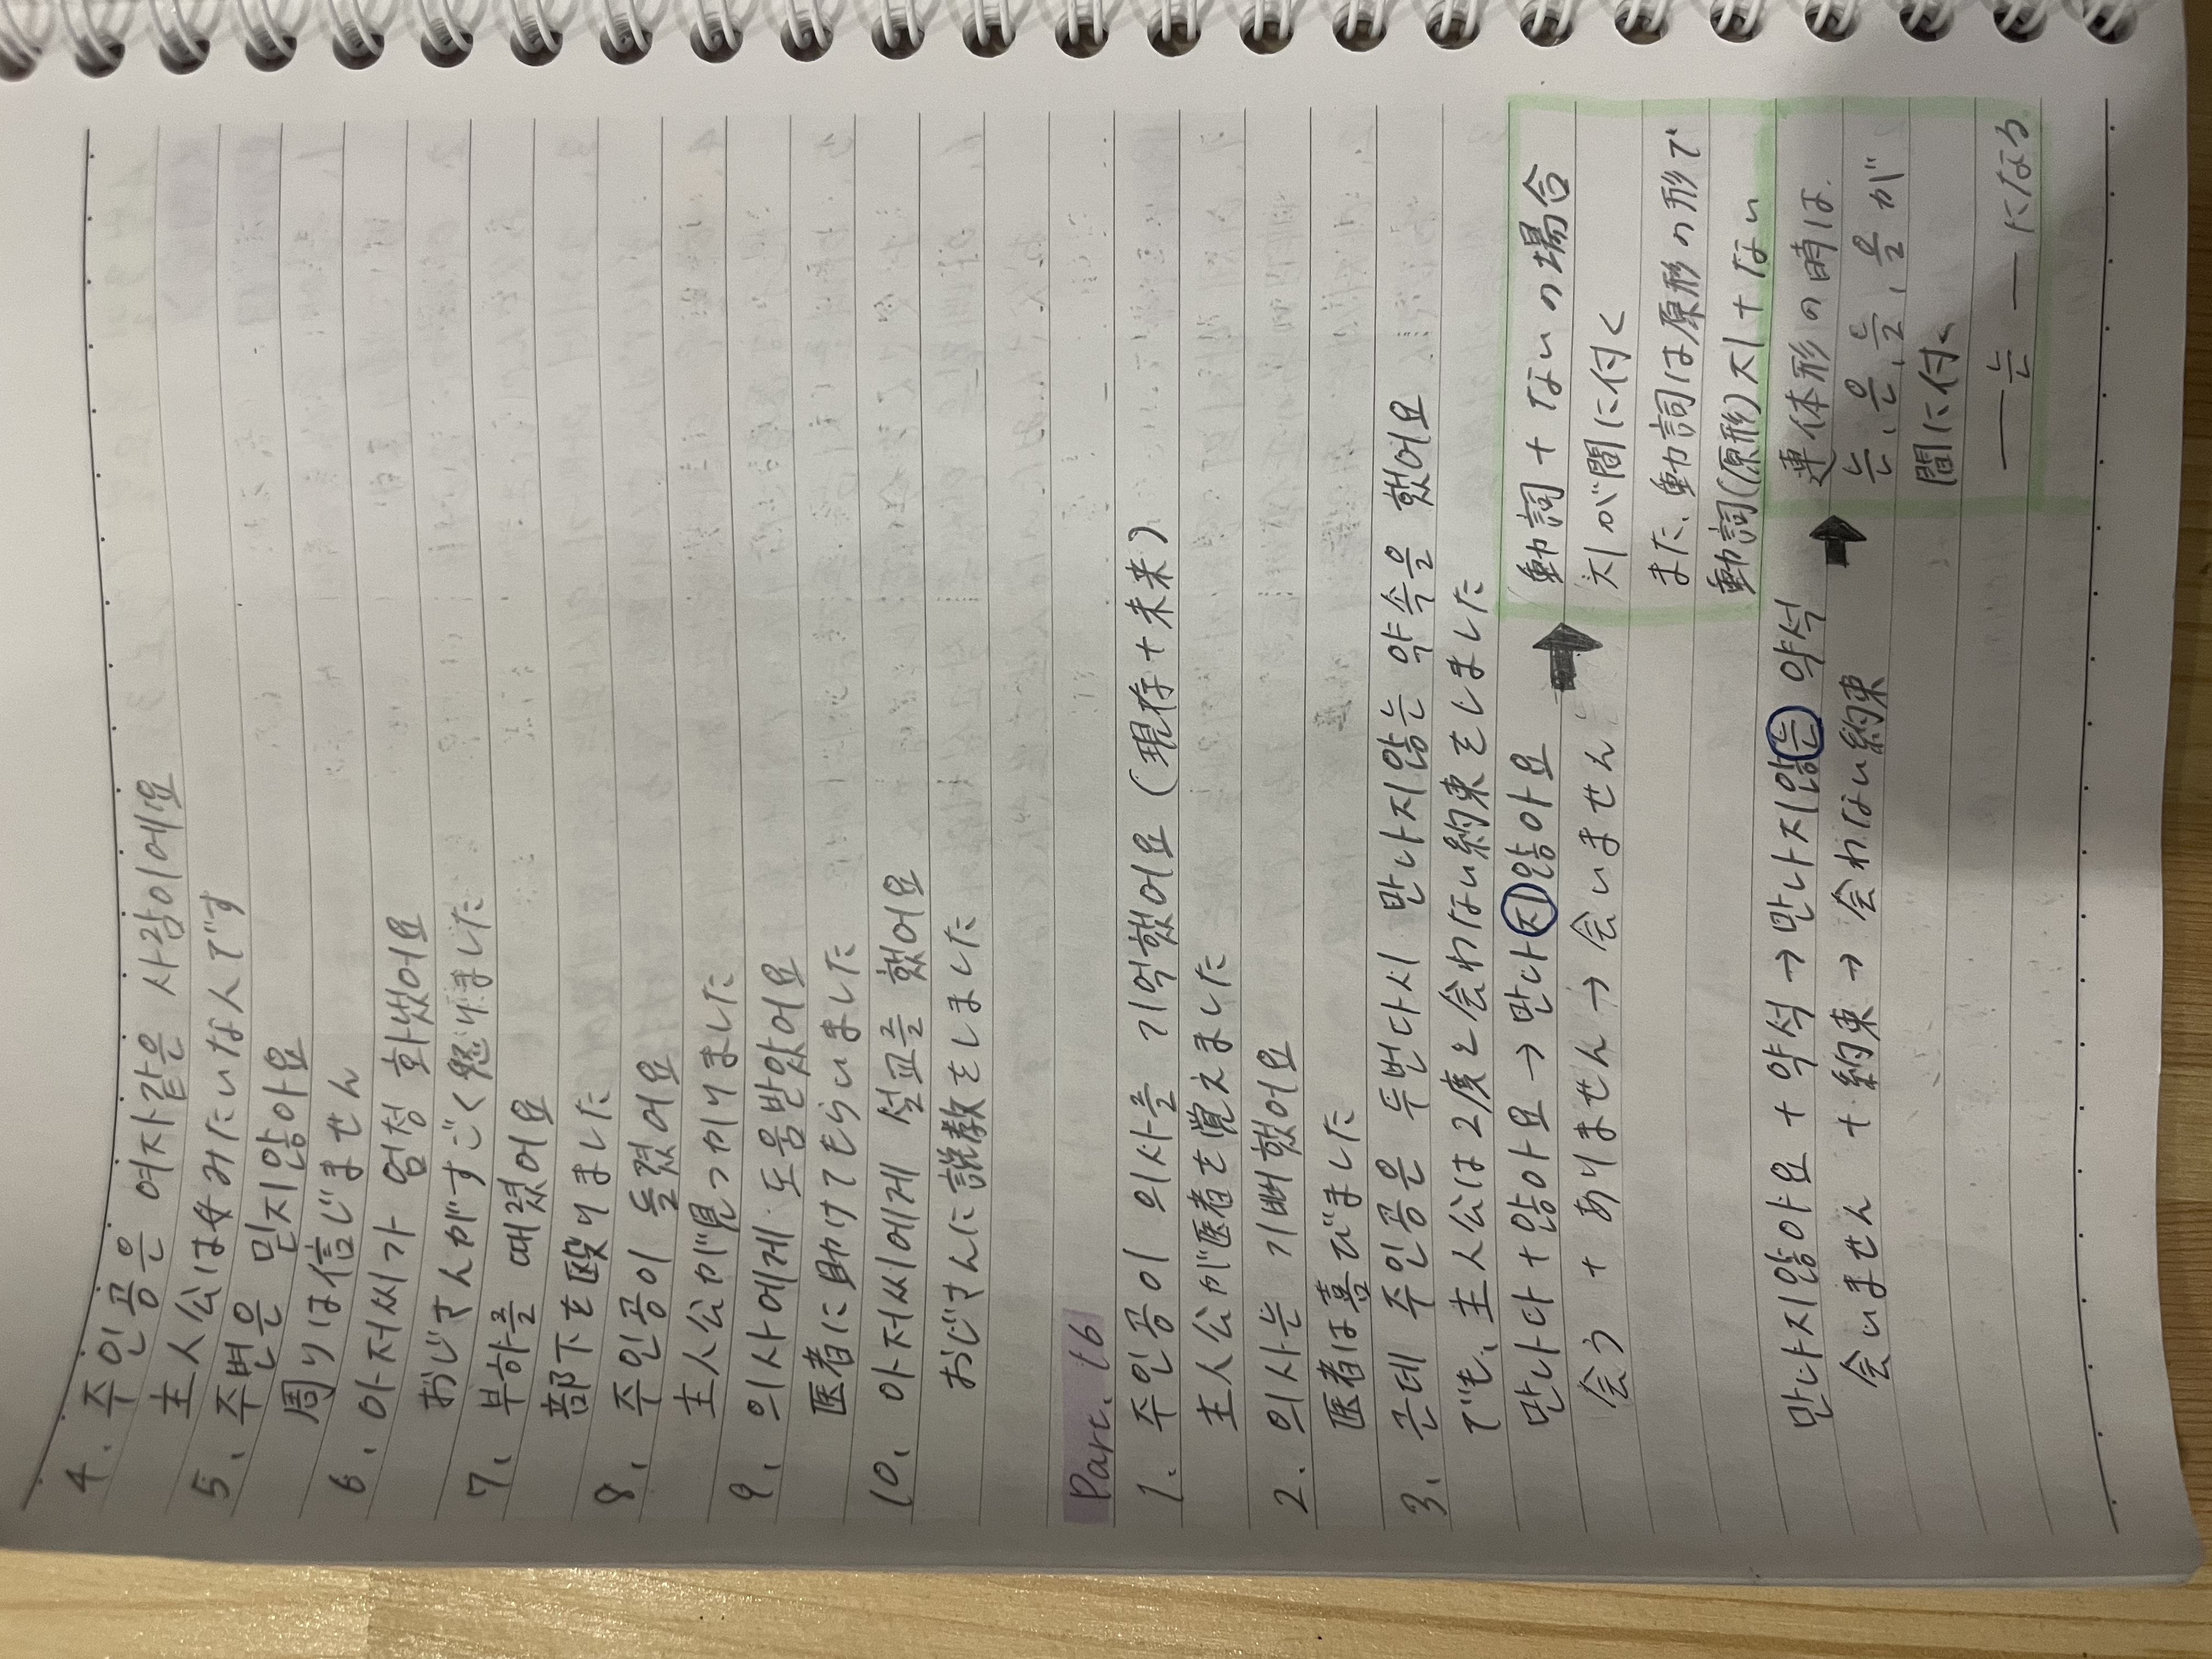 4. 주인공은 여자같은 사람이에요
主人公は女みたいな人です
5. 주변은 믿지않아요
周りは信じません
6. 아저씨가 엄청 화냈어요
おじさんがすごく怒りました
7. 부하를 때렸어요
部下を殴りました
8. 주인공이 들켰어요
主人公が見つかりました
9. 의사에게 도움받았어요
医者に助けてもらいました
10. 아저씨에게 설교를 했어요
おじさんに説教をしました
Part. 16
1. 주인공이 의사를 기억했어요 (現存+未来)
主人公が医者を覚えました
2. 의사는 기뻐했어요
医者は喜びました
3. 근데 주인공은 두번다시 만나지않는 약속을 했어요
でも、主人公は2度と会わない約束をしました
만나다 + 않아요 → 만나지않아요
会う + ありません → 会いません
動詞+ないの場合
지が間に付く
また、動詞は原形の形で
動詞(原形)지+ない
만나지않아요 + 약석 → 만나지않는 약석
会いません + 約束 → 会わない約束
連体形の時は
는、은、를、을が
間に付く
― 는 ― になる